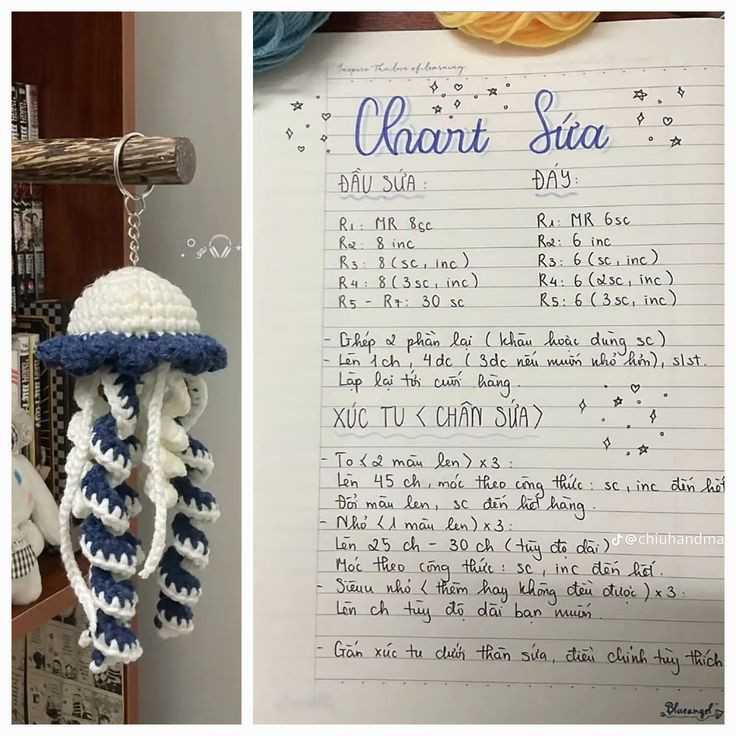 Inspire The love of learning
Chart Sứa
ĐẦU SỨA :
R1: MR 8sc
R2: 8 inc
R3: 8 (sc, inc)
R4: 8 (3sc, inc)
R5 - R7: 30 sc
ĐÁY:
R1: MR 6sc
R2: 6 inc
R3: 6 (sc, inc)
R4: 6 (2sc, inc)
R5: 6 (3sc, inc)
- Ghép 2 phần lại (khâu hoặc dùng sc)
- Lên 1ch, 4dc (3dc nếu muốn nhỏ hơn), slst.
Lặp lại tới cuối hàng.
XÚC TU < CHÂN SỨA >
- To <2 màu len> x3 :
Lên 45 ch, móc theo công thức: sc, inc đến hết
Đổi màu len, sc đến hết hàng.
- Nhỏ <1 màu len> x3 :
Lên 25 ch - 30 ch (tùy độ dài)
Móc theo công thức: sc, inc đến hết.
- Siêuu nhỏ < thêm hay không đều được > x3 :
Lên ch tùy độ dài bạn muốn.
- Gắn xúc tu dưới thân sứa, điều chỉnh tùy thích
@chiuhandma
Blueangel